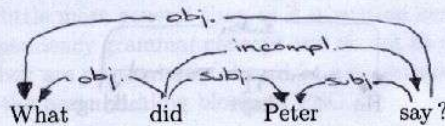 obj.
incompl.
obj. subj. subj.
What did Peter say?